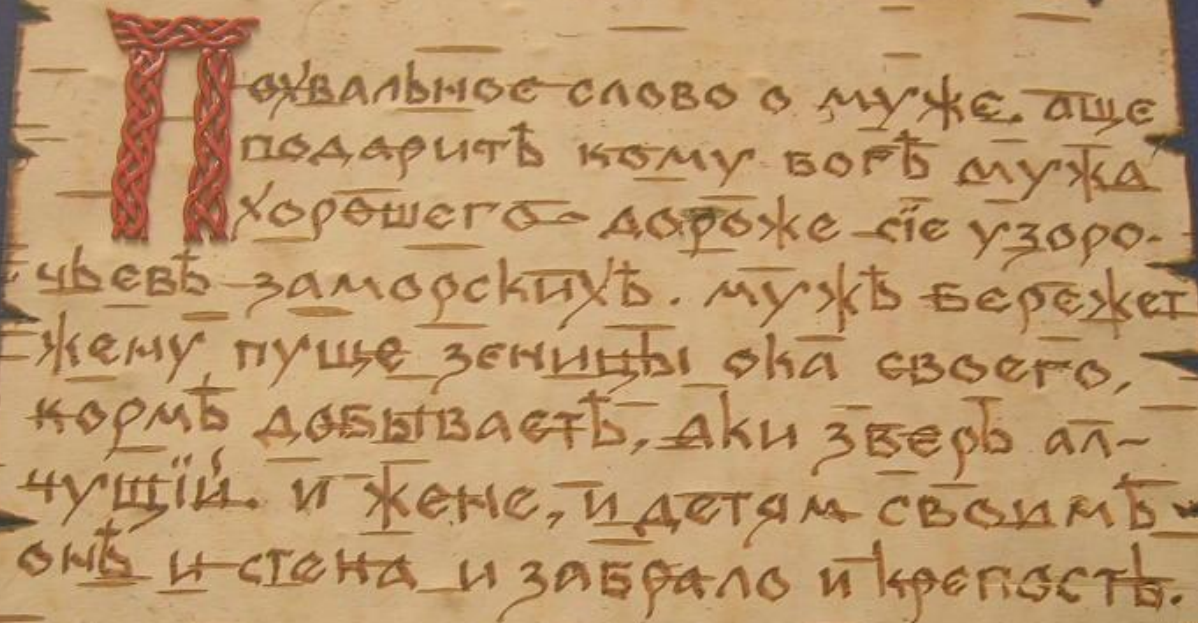 Похвальное слово о муже. аще
подаритъ кому богъ мужа
хорошего – дороже сїе узоро-
чьевъ заморскихъ. мужъ бережет
жену пуще зеницы ока своего,
кормъ добываетъ, аки зверь ал-
чущїй. и жене, и детям своимъ -
онъ и стена и забрало и крепость.